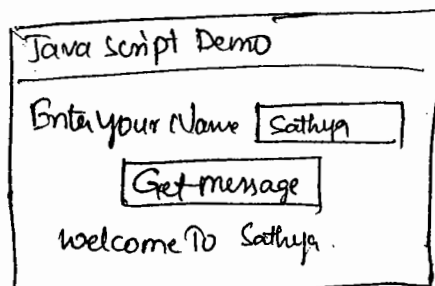 Java Script Demo
Enter Your Name Sathya
Get message
Welcome To Sathya.